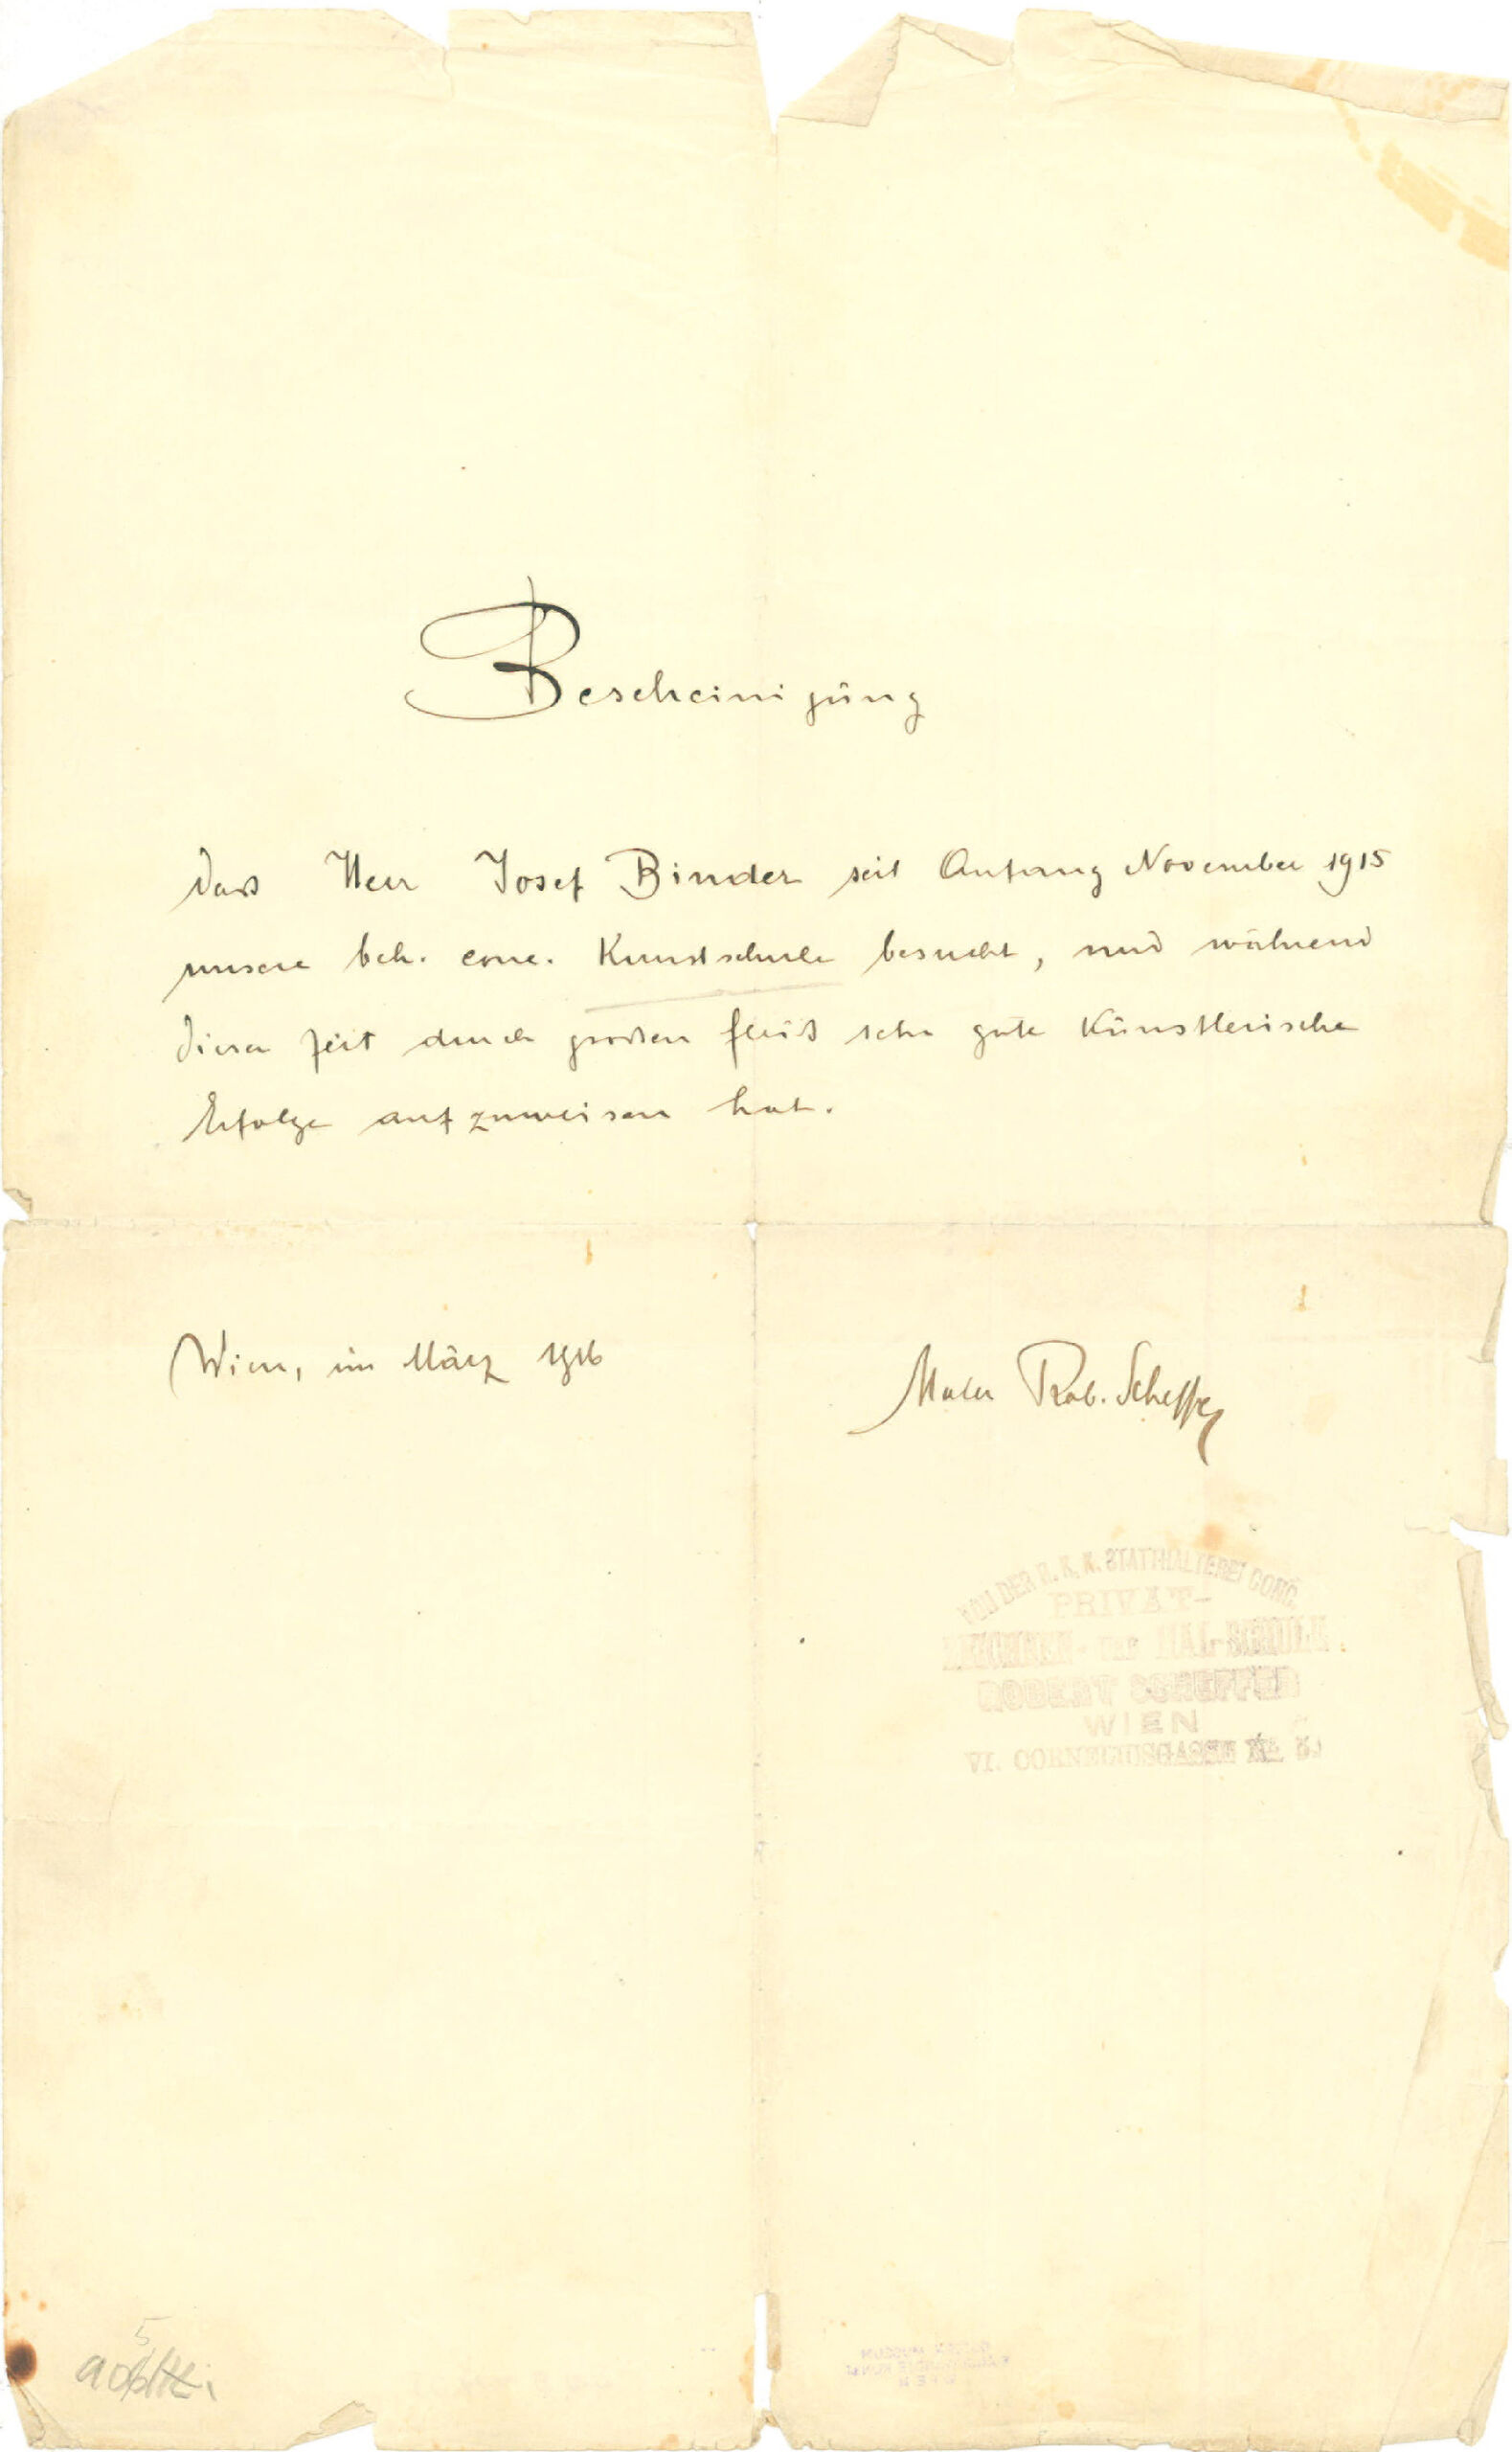 Bescheinigung
dass Herr Josef Binder seit Anfang November 1915
unsere beh. conc. Kunstschule besucht, und während
dieser Zeit durch großen Fleiß sehr gute Künstlerische
Erfolge aufzuweisen hat.
Wien, im März 1916
Maler Rob. Scheffer
VON DER K. K. N. STATTHALTEREI CONC.
PRIVAT-
ZEICHNEN- UND MAL-SCHULE
ROBERT SCHEFFER
WIEN
VI. CORNELIUSGASSE